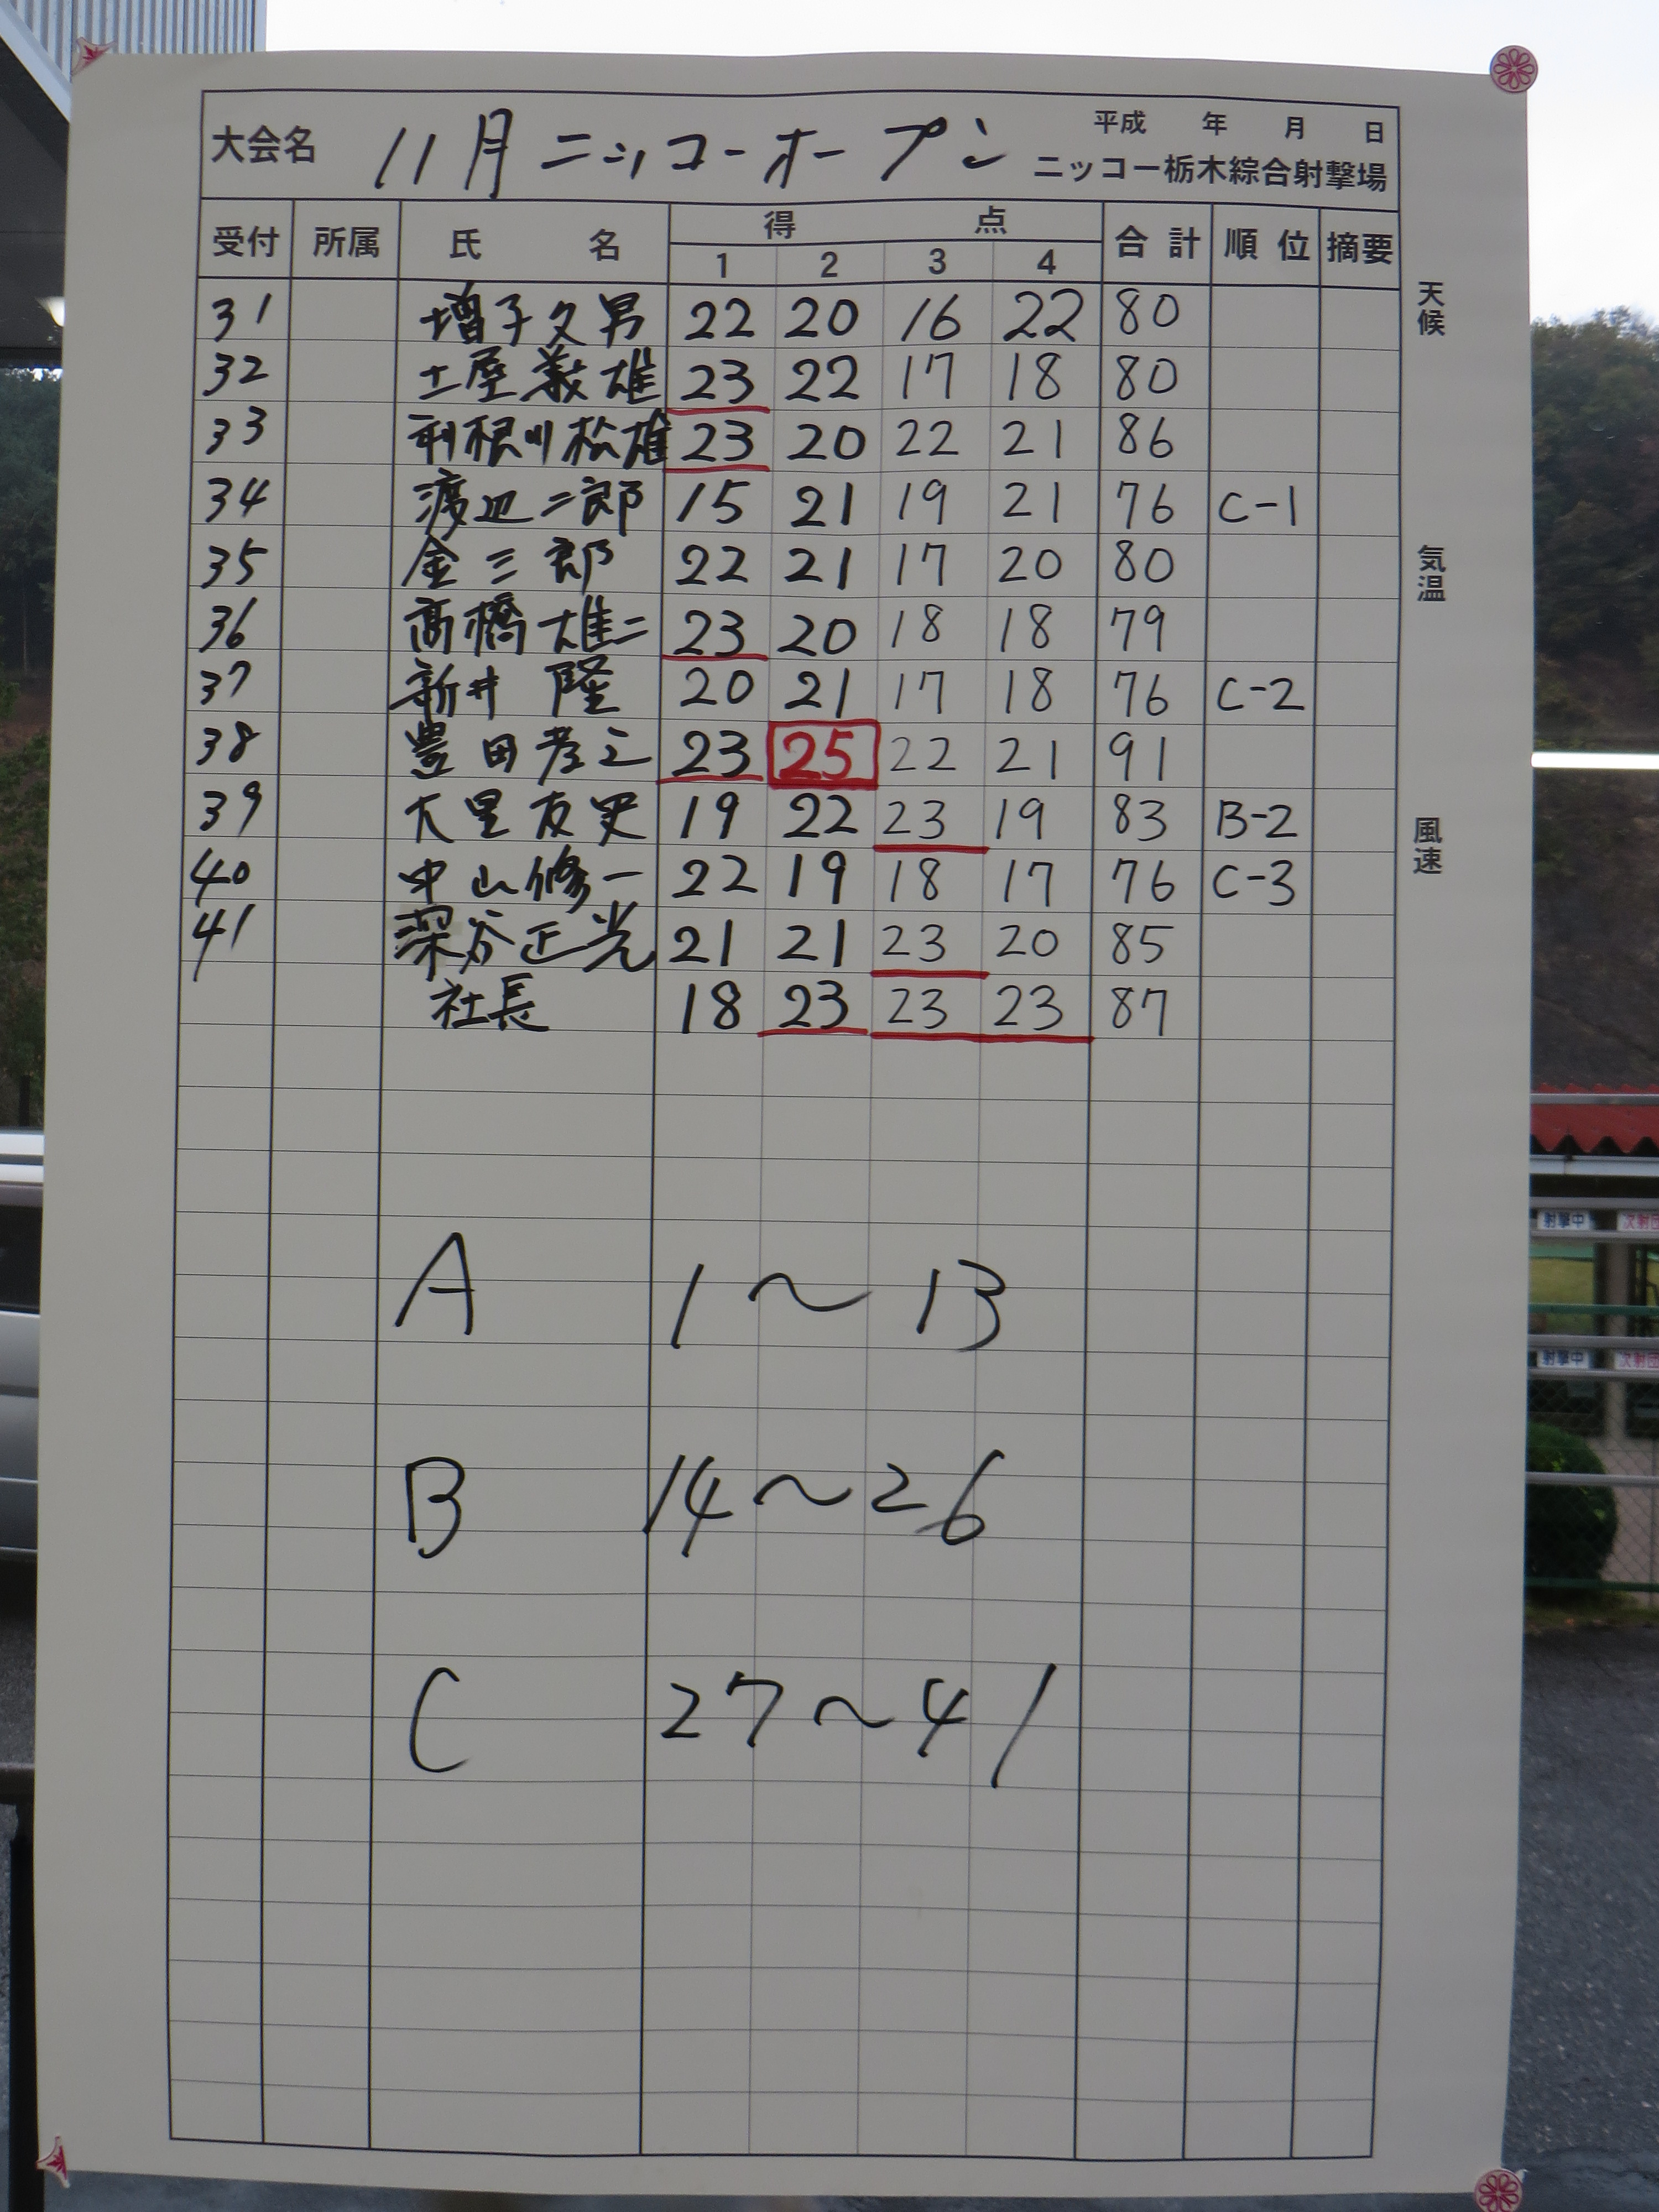 大会名 11月 ニッコーオープン 平成 年 月 日
ニッコー栃木綜合射撃場
受付 所属 氏名 得点 合計 順位 摘要
1 2 3 4
31 増子久男 22 20 16 22 80
32 土屋義雄 23 22 17 18 80
33 利根川松雄 23 20 22 21 86
34 渡辺二郎 15 21 19 21 76 C-1
35 金三郎 22 21 17 20 80
36 高橋雄二 23 20 18 18 79
37 新井 隆 20 21 17 18 76 C-2
38 豊田孝之 23 25 22 21 91
39 大里友史 19 22 23 19 83 B-2
40 中山修一 22 19 18 17 76 C-3
41 深谷正光 21 21 23 20 85
社長 18 23 23 23 87
A 1〜13
B 14〜26
C 27〜41
天候
気温
風速
射撃中
射撃中